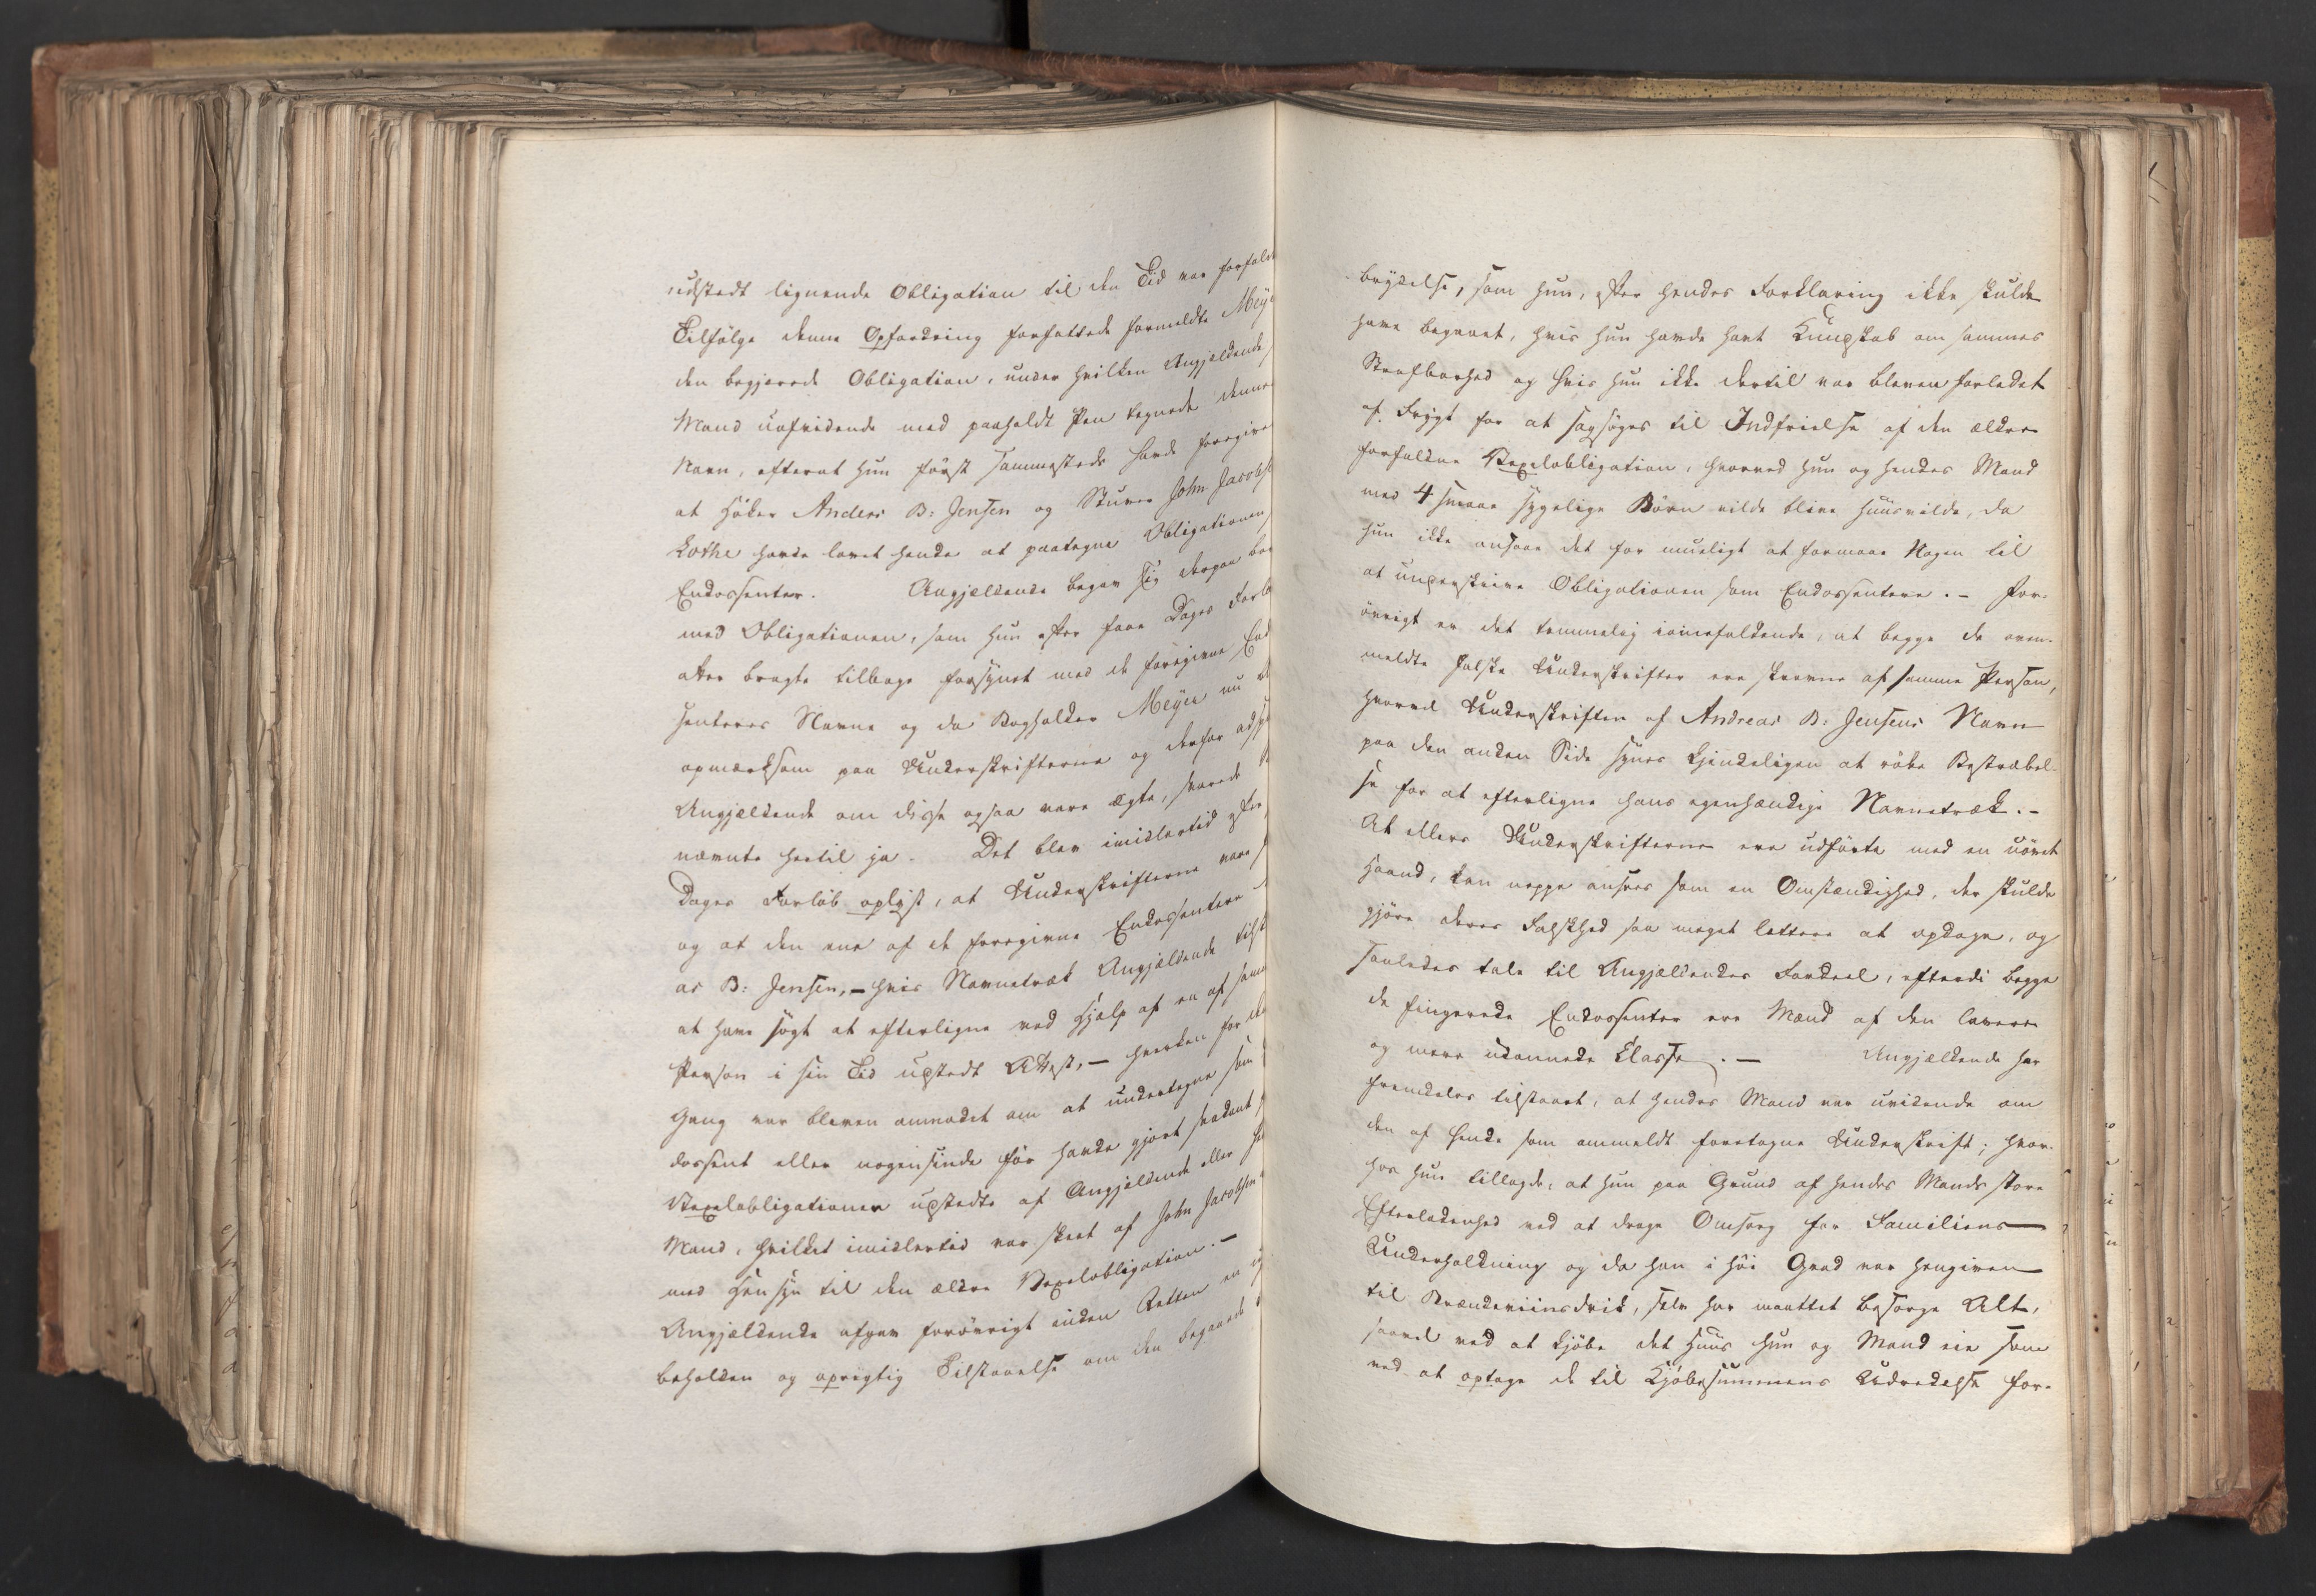 udstedt lignende Obligation til den Tid var forfald
Tilfølge denne Opfordring forfattede formeldte Meÿe
den begjærede Obligation, under hvilken Angjældende,
Mand uafvidende med paaholdt Pen tegnede dennes
Navn, efterat hun først sammesteds havde foregivet
at Høker Anders B: Jensen og Stuver John Jacobse
Lothe havde lovet hende at paategne Obligationen
Endossenter. Angjældende begav sig derpaa bor
med Obligationen, som hun efter faae Dages Forlø
atter bragte tilbage forsynet med de foregivne End
senteres Navne og da Bogholder Meÿer nu bl
opmærksom paa Underskrifterne og derfor adsp
Angjældende om disse ogsaa vare ægte, svarede
nævnte hertil ja. Det blev imidlertid efter
Dages Forløb oplyst, at Underskrifterne vare
og at den ene af de foregivne Endossentere
as B: Jensen, – hvis Navnetræk Angjældende tilst
at have søgt at efterligne ved Hjælp af en af samme
Person i sin Tid udstedt Attest, – hverken for de
Gang var bleven anmodet om at undertegne som
dossent eller nogensinde før havde gjort saadant
Vexelobligationer udstedte af Angjældende eller he
Mand, hvilket imidlertid var skeet af John Jacobsen
med Hensyn til den ældre Vexelobligation. –
Angjældende afgav forøvrigt inden Retten en u
beholden og oprigtig Tilstaaelse om den begaaede
brydelse, som hun, efter hendes Forklaring ikke skulde
have begaaet, hvis hun havde havt Kundskab om sammes
Strafbarhed og hvis hun ikke dertil var bleven forledet
af Frygt for at sagsøges til Indfrielse af den ældre
forfaldne Vexelobligation, hvorved hun og hendes Mand
med 4 smaae sygelige Børn vilde blive huusvilde, da
hun ikke ansaae det for mueligt at formaae Nogen til
at underskrive Obligationen som Endossentere. – For-
øvrigt er det temmelig iøinefaldende, at begge de oven-
meldte falske Underskrifter ere skrevne af samme Person,
hvorved Underskriften af Andreas B: Jensens Navn
paa den anden Side synes kjendeligen at røbe Bestræbel-
se for at efterligne hans egenhændige Navnetræk. –
At ellers Underskrifterne ere udførte med en uøvet
Haand, kan neppe ansees som en Omstændighed, der skulde
gjøre deres Falskhed saa meget lettere at opdage, og
saaledes tale til Angjældendes Fordeel, efterdi begge
de fingerede Endossenter ere Mænd af den lavere
og mere udannede Classe. – Angjældende har
fremdeles tilstaaet, at hendes Mand var uvidende om
den af hende som anmeldt foretagne Underskrift; hvor-
hos hun tillagde, at hun paa Grund af hendes Mands store
Efterladenhed ved at drage Omsorg for Familiens
Underholdning og da han i høi Grad var hengiven
til Brændeviinsdrik, selv har maattet besørge Alt,
saavel ved at kjøbe det Huus hun og Mand eie som
ved at optage de til Kjøbesummens Udredelse for-